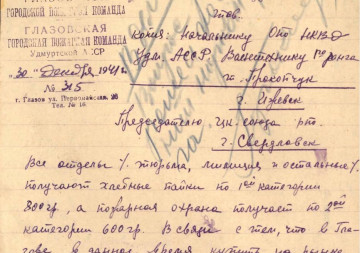 ГОРОДСКОЙ ПОЖАРНАЯ КОМАНДА
ГЛАЗОВСКАЯ
ГОРОДСКАЯ ПОЖАРНАЯ КОМАНДА
Удмуртской АССР
"30" Декабря 1941 г.
№ 315
г. Глазов ул. Первомайская 28
Тел. № 18
Тов.
Копия: Начальнику Ото НКВД
Удм. АССР. Воентехнику 1го ранга
то. Прокопчук
г. Ижевск
Председателю Ц.К. союза рпо.
г. Свердловск
Все отделы /. тюрьма, милиция и остальные /.
получают хлебные пайки по 1ой категории
800 гр, а пожарная охрана получает по 2ой
категории 600 гр. В связи с тем, что в Гла-
зове в данное время купить на рынке